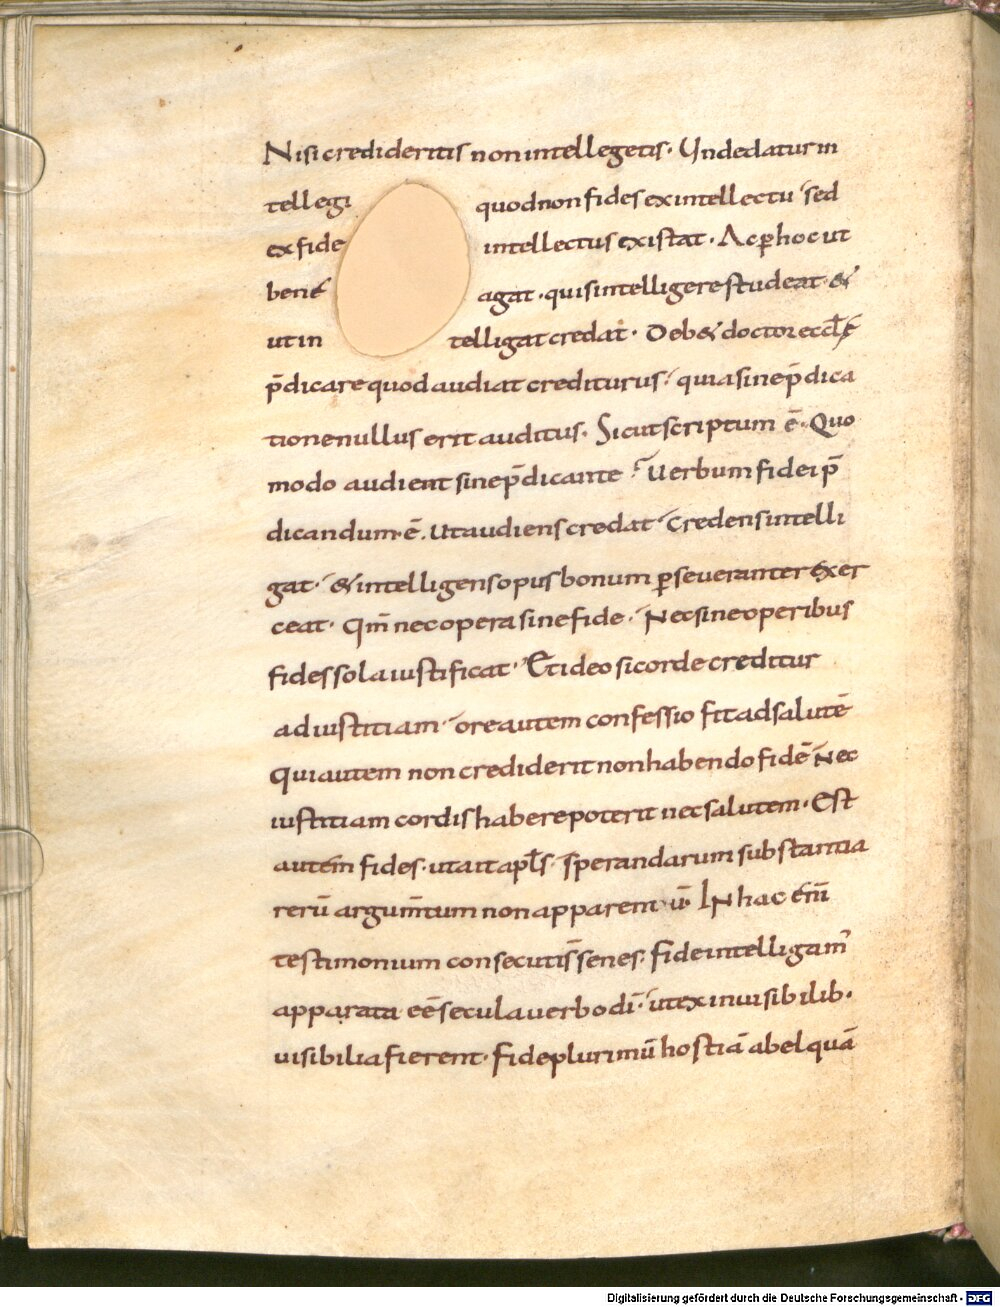 Nisi credideritis non intellegetis. Unde datur in
tellegi quod non fides ex intellectu sed
ex fide intellectus existat. Ac ꝑ hoc ut
bene agat. quis intelligere studeat. &
ut in telligat credat. Deb& doctor eccl̄ę
p̄dicare quod audiat crediturus. quia sine p̄dica
tione nullus erit auditus. Sicut scriptum ē. Quo
modo audient sine p̄dicante. Uerbum fidei p̄
dicandum ē. Ut audiens credat. Credens intelli
gat. & intelligens opus bonum ꝑseueranter exer
ceat. Qm̄ nec opera sine fide. Nec sine operibus
fides sola iustificat. Et ideo si corde creditur
ad iustitiam. ore autem confessio fit ad salutē
Qui autem non crediderit non habendo fidē Nec
iustitiam cordis habere poterit nec salutem. Est
autem fides. ut ait apl̄s. sperandarum substantia
rerū argum̄tum non apparentiū. IN hac enī
testimonium consecuti s̄ senes. fide intelligam᾽
apparata eē secula uerbo dī. ut ex inuisibilib.
uisibilia fierent. Fide plurimū hostiā abel quā
Digitalisierung gefördert durch die Deutsche Forschungsgemeinschaft - DFG